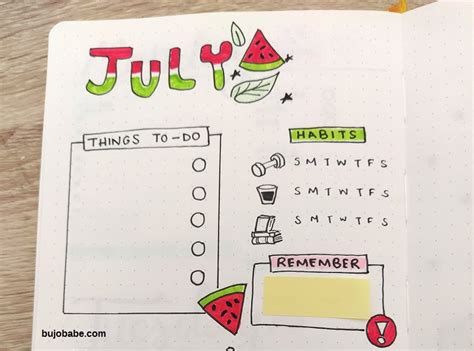 JULY
THINGS TO-DO
HABITS
S M T W T F S
S M T W T F S
S M T W T F S
REMEMBER
!
bujobabe.com